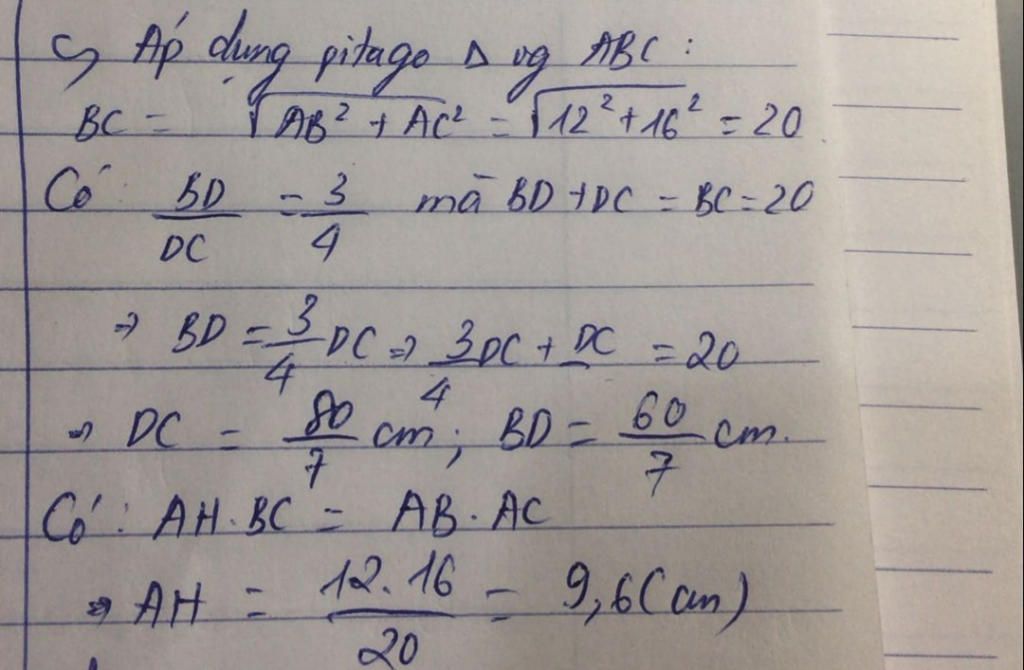 c) Áp dụng pitago Δ vg ABC:
BC = √(AB² + AC²) = √(12² + 16²) = 20
Có: BD/DC = 3/4 mà BD + DC = BC = 20
⇒ BD = 3/4 DC ⇒ 3/4 DC + DC = 20
⇒ DC = 80/7 cm; BD = 60/7 cm.
Có: AH.BC = AB.AC
⇒ AH = 12.16/20 = 9,6(cm)